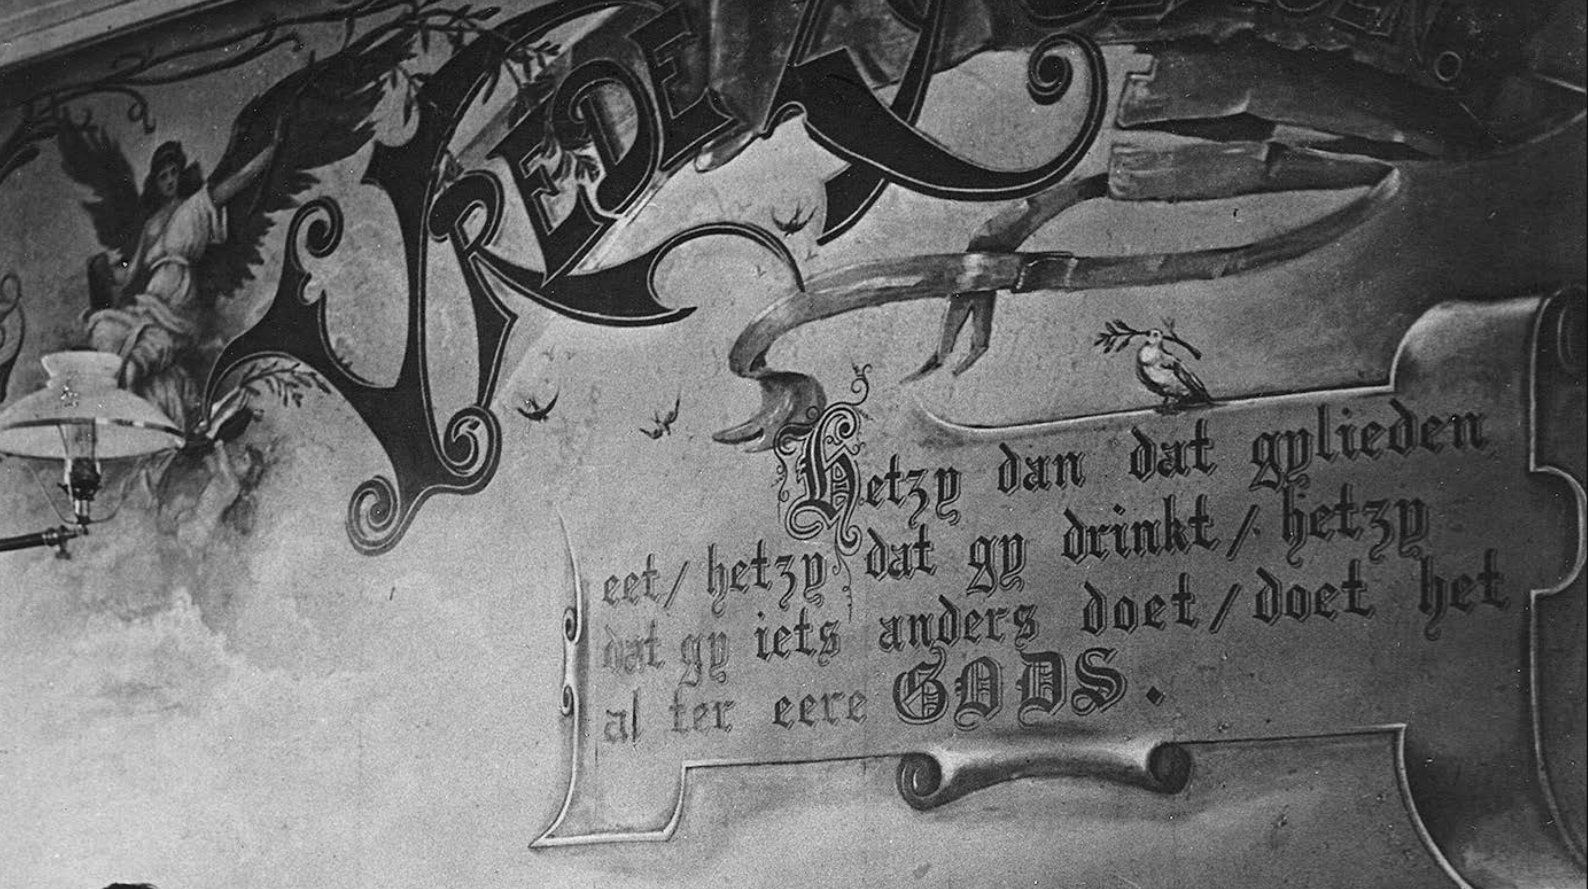 VREDE
Hetzy dan dat gylieden
eet/ hetzy dat gy drinkt/ hetzy
dat gy iets anders doet/ doet het
al ter eere GODS.